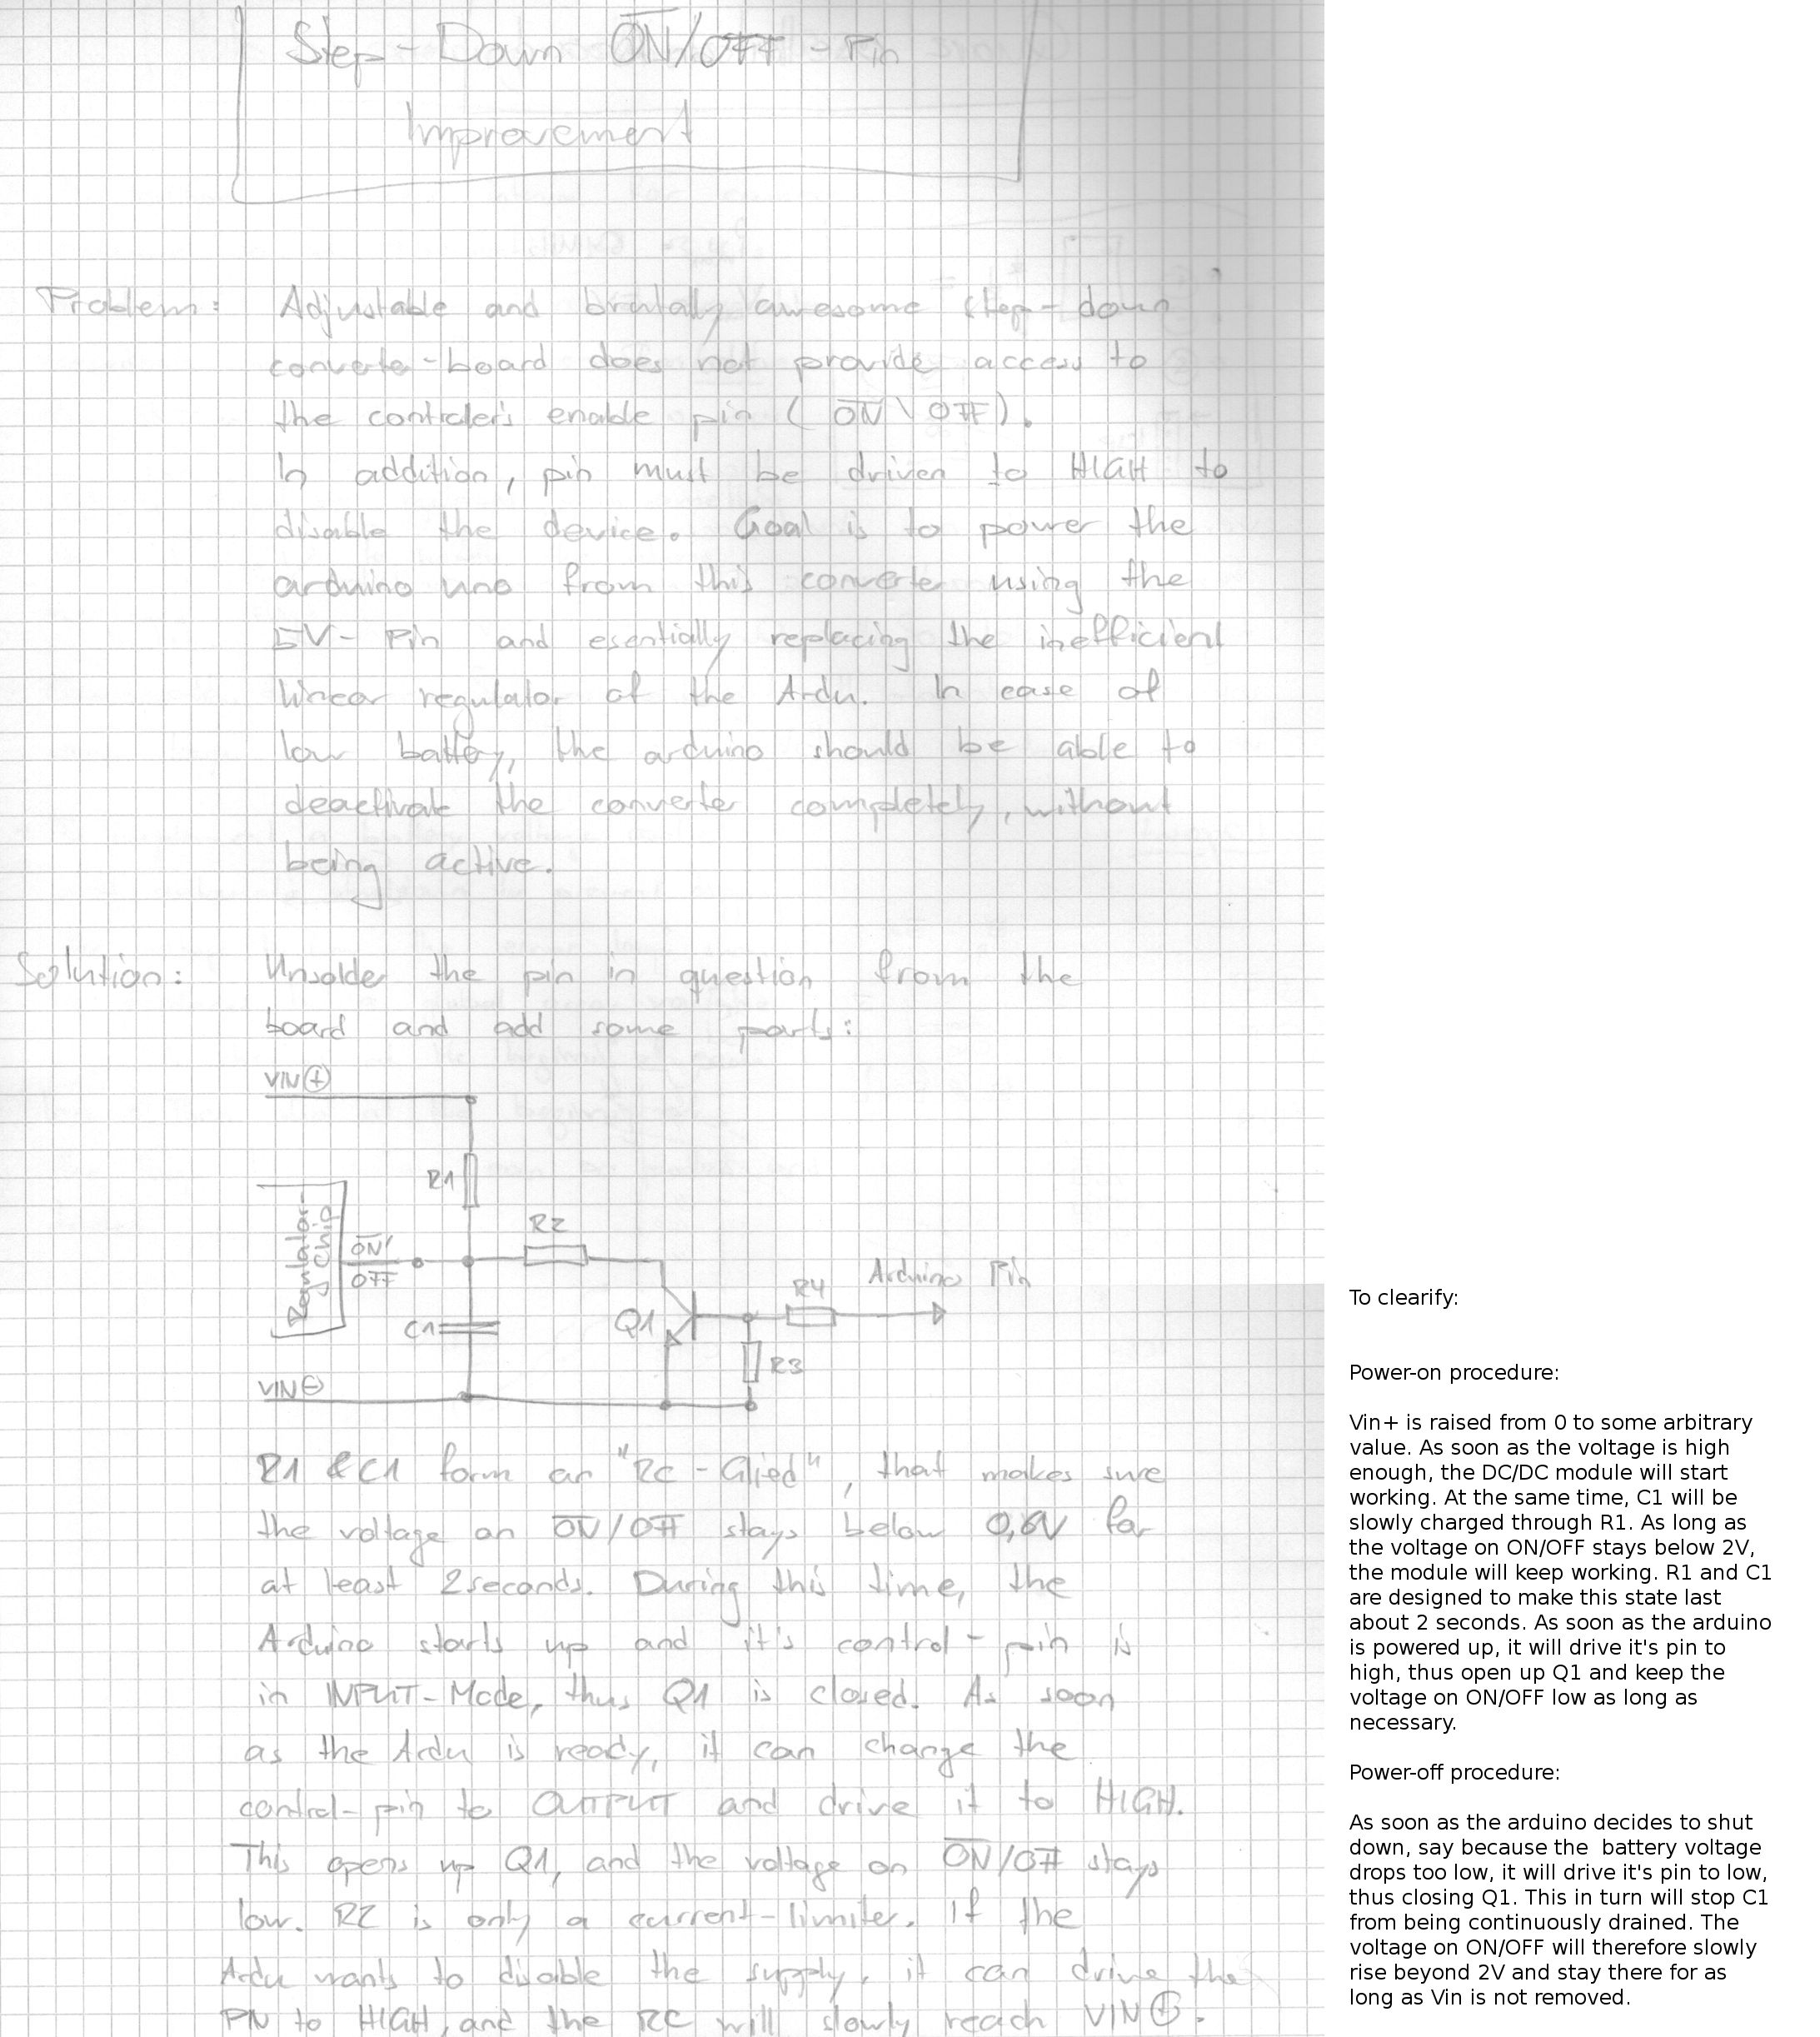 Step-Down O̅N̅/OFF-Pin
Improvement
Problem: Adjustable and brutally awesome step-down
converte-board does not provide access to
the contrcler's enable pin ( O̅N̅\OFF).
In addition, pin must be driven to HIGH to
disable the device. Goal is to power the
arduino uno from this converter using the
5V-Pin and esentially replacing the inefficient
linear regulator of the Ardu. In case of
low battery, the arduino should be able to
deactivate the converter completely, without
being active.
Solution: Unsolder the pin in question from the
board and add some parts:
VIN⊕
R1
Regulator-
Chip
O̅N̅/
OFF
R2
C1
Q1
R4
Arduino Pin
R3
VIN⊖
R1 & C1 form an "RC-Glied", that makes sure
the voltage on O̅N̅/OFF stays below 0,6V for
at least 2seconds. During this time, the
Arduino starts up and it's control-pin is
in INPUT-Mode, thus Q1 is closed. As soon
as the Ardu is ready, it can change the
control-pin to OUTPUT and drive it to HIGH.
This opens up Q1, and the voltage on O̅N̅/OFF stays
low. R2 is only a current-limiter. If the
Ardu wants to disable the supply, it can drive the
PIN to HIGH, and the RC will slowly reach VIN⊕.
To clearify:
Power-on procedure:
Vin+ is raised from 0 to some arbitrary
value. As soon as the voltage is high
enough, the DC/DC module will start
working. At the same time, C1 will be
slowly charged through R1. As long as
the voltage on ON/OFF stays below 2V,
the module will keep working. R1 and C1
are designed to make this state last
about 2 seconds. As soon as the arduino
is powered up, it will drive it's pin to
high, thus open up Q1 and keep the
voltage on ON/OFF low as long as
necessary.
Power-off procedure:
As soon as the arduino decides to shut
down, say because the  battery voltage
drops too low, it will drive it's pin to low,
thus closing Q1. This in turn will stop C1
from being continuously drained. The
voltage on ON/OFF will therefore slowly
rise beyond 2V and stay there for as
long as Vin is not removed.